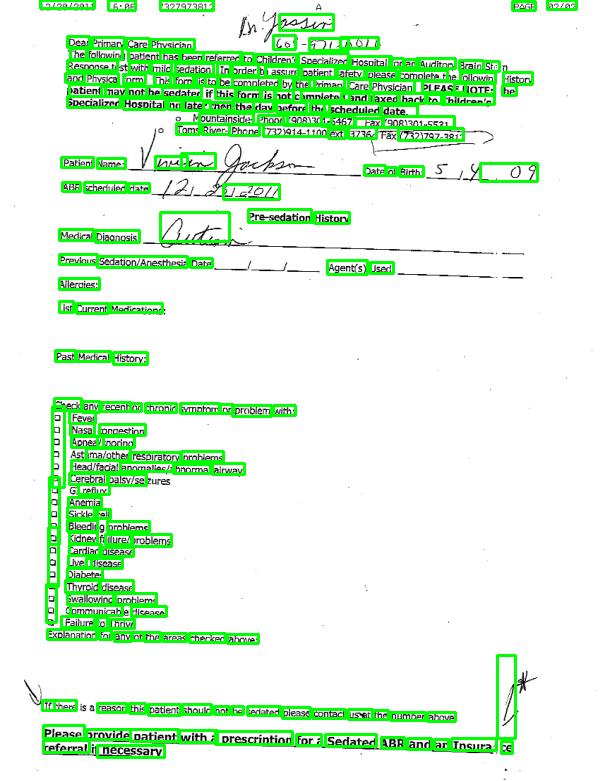 12/20/2011 16:06 7327973812 A PAGE 02/02
Dr. Yassin
Dear Primary Care Physician
The following patient has been referred to Children's Specialized Hospital for an Auditory Brain Stem
Response test with mild sedation. In order to assure patient safety please complete the following History
and Physical form. This form is to be completed by the Primary Care Physician. PLEASE NOTE: the
patient may not be sedated if this form is not completed and faxed back to Children's
Specialized Hospital no later then the day before the scheduled date.
Mountainside: Phone (908)301-5467 Fax (908)301-5531
Toms River- Phone (732)914-1100 ext 3736 Fax (732)797-3812
Patient Name: Vivian Jackson Date of Birth: 5 4 09
ABR scheduled date 12, 2 , 2011
Pre-sedation History
Medical Diagnosis Autism
Previous Sedation/Anesthesia Date / / Agent(s) Used
Allergies:
List Current Medications:
Past Medical History:
Check any recent or chronic symptom or problem with:
Fever
Nasal congestion
Apnea/snoring
Asthma/other respiratory problems
Head/facial anomalies/abnormal airway
Cerebral palsy/seizures
GI reflux
Anemia
Sickle cell
Bleeding problems
Kidney failure/problems
Cardiac disease
Liver disease
Diabetes
Thyroid disease
Swallowing problems
Communicable disease
Failure to Thrive
Explanation for any of the areas checked above:
If there is a reason this patient should not be sedated please contact us at the number above
Please provide patient with a prescription for a Sedated ABR and an Insurance
referral if necessary